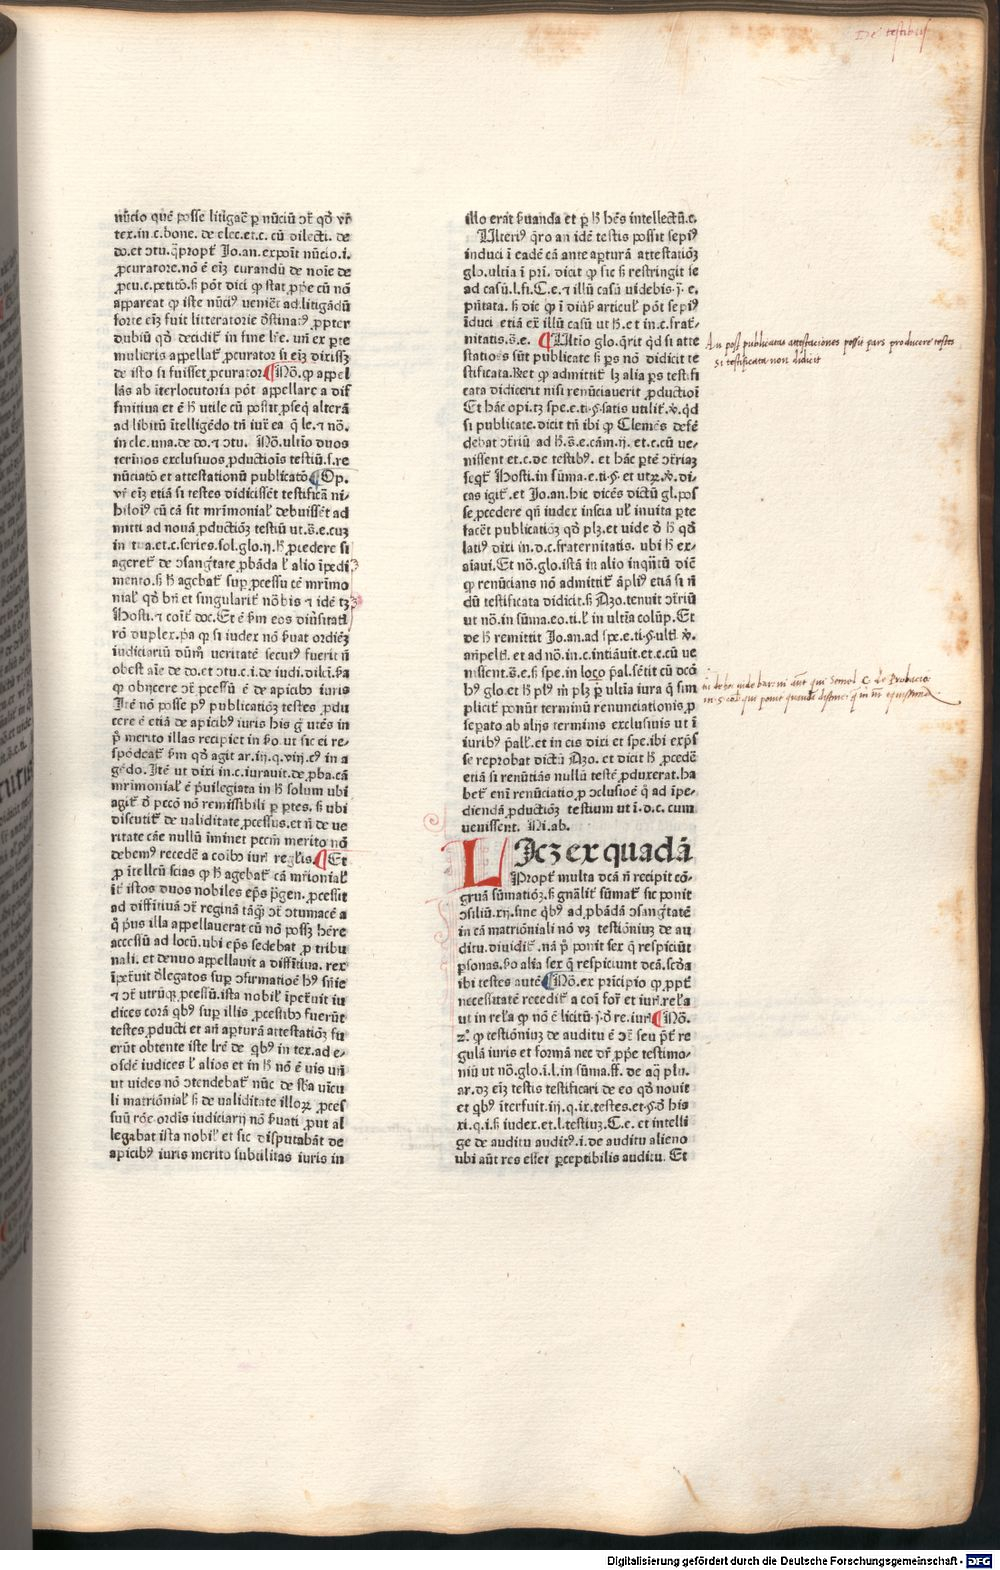 De testibus
nūcio quē posse litigaē p nūciū ↄt̄ qđ vr̄
tex.in.c.bone. de elec.et.c. cū dilecti. de
do.et ↄtu. q̄propt̄ Jo.an.expoīt nūcio.i.
ꝓcuratore.nō ē eīꝫ curandū de noīe de
appareat ꝙ iste nūciꝰ veniēt ad litigādū
forte eīꝫ fuit litteratorie d̄stinatꝰ ꝓpter
dubiū qđ decidit̄ in fine lr̄e. vn̄ ex ꝑte
mulieris appellat̄ ꝓcurator si eīꝫ dixissꝫ
de isto si fuisset ꝓcurator ¶ Nō. ꝙ appel
lās ab īterlocutoria pōt appellare a dif
finitiua et ē ħ utile cū possit ꝓseq̄ alterā
ad libitū ītelligēdo tn̄ iux̄ ea q̄ le. ⁊ nō.
in cle.una.de do. ⁊ ↄtu. Nō. ultīo duos
terinos exclusiuos ꝓductiōis testiū.s.re
nūciatō et attestationū publicatō ¶ Op.
vr̄ eīꝫ etiā si testes didicissēt testificā ni-
hiloīꝰ cū cā sit mr̄imonial̄ debuissēt ad
mitti ad nouā ꝓductiōꝫ testiū ut.s̄.e.cuꝫ
in tua.et.c.series.sol.glo.ij.ħ ꝓcedere si
ageret̄ de ↄsanḡtate ꝓbāda l̄ alio īpedi
mento.s̄ ħ agebat̄ suꝑ ꝓcessu cē mr̄imo
nial̄ qđ bn̄ et singularit̄ nōbis ⁊ idē tꝫ
Hosti. ⁊ coīt̄ doc. Et ē s̄m eos diūsitatꝭ
rō duplex. p̄a ꝙ si iudex nō s̄uat ordiēꝫ
iudiciariū dūm̄ veritatē secutꝰ fuerit n̄
obest aīe de do.et ↄtu.c.i.de iudi.dilcī.s̄a
ꝙ obijcere ↄt̄ ꝓcessū ē de apicibꝰ iuris
Itē nō posse pꝰ publicatiōꝫ testes ꝓdu
cere ē etiā de apicibꝰ iuris his g̃ utēs in
p̄ merito illas recipiet in s̄o. ut sic ei re-
spōdeat̄ s̄m qđ agit ar.iij.q.viij.cꝰ in a
gēdo. Itē ut dixi in.c.iurauit.de ꝓba.cā
mr̄imonial̄ ē p̄uilegiata in ħ solum ubi
agit̄ đ pccō nō remissibili ꝑ ꝑtes. s̄ ubi
discutit̄ de ualiditate ꝓcessus.et n̄ de ue
ritate cāe nullū iminet pccm̄ merito nō
debemꝰ recedē a coībꝰ iurī regl̄is. ¶ Et
ꝓ ītellcū scias ꝙ ħ agebat̄ cā mr̄ionial̄
ad diffitiuā ↄt̄ reginā tāq̄ ↄt̄ ↄtumacē a
q̄ p̄us illa appellauerat cū nō possꝫ hēre
accessū ad locū. ubi ep̄s sedebat ꝓ tribu
nali. et denuo appellauit a diffitiua. rex
īpet̄uit đlegatos suꝑ ↄfirmatioē hꝰ sn̄ie
⁊ ↄt̄ utrūqꝫ ꝓcessū. ista nobil̄ īpet̄uit iu
dices corā qbꝰ suꝑ illis ꝓcessibꝰ fuerūt
testes ꝓducti et an̄ apturā attestatiōꝫ fu
erūt obtente iste lr̄e de qbꝰ in tex. ad e-
osdē iudices l̄ alios et in ħ nō ē vis un̄
ut uides nō ↄtendebat̄ nūc de s̄ba uīcu
li matriōnial̄ s̄ de ualiditate illoꝝ ꝓces
suū rōe ordīs iudiciarij nō s̄uati ꝓut al
legabat ista nobil̄ et sic disputabāt de
apicibꝰ iuris merito subtilitas iuris in
illo erāt s̄uanda et ꝑ ħ hēs intellectū.c.
Ulteriꝰ q̄ro an idē testis possit sepiꝰ
induci ī eadē cā ante apturā attestatiōꝫ
glo.ultīa ī prī. dicit ꝙ sic s̄ restringit se
ad casū.l.fi.C.e. ⁊ illū casū uidebis.j.e.
p̄ntata. s̄ dic ꝙ ī diūs̄ articul̄ pōt sepiꝰ
īduci etiā ex illū casū ut ħ.et in.c.frat̄-
nitatis.s̄.e. ¶ Ultīo glo.q̄rit qđ si atte
statioēs sūt publicate s̄ ꝑs nō didicit te
stificata. Rēt ꝙ admittit̄ lꝫ alia ꝑs testifi
cata didicerit nisi renūciauerit ꝓductiōī
Et hāc opi.tꝫ spe.e.ti.§.satis utilit̄.ꝟ.qđ
si publicate. dicit tn̄ ibi ꝙ Clemēs defē
debat ↄt̄riū ad ħ.s̄.e.cām.ij. et.c.cū ue-
nissent et.c.de testibꝰ. et hāc ꝑtē ↄt̄riaꝫ
seqt̄ Hosti.in sūma.e.ti.§ et utꝝ.ꝟ.di-
cas igit̄.et Jo.an.hic dicēs dictū gl.pos
se ꝓcedere qn̄ iudex inscia ul̄ inuita ꝑte
facēt publicatiōꝫ qđ plꝫ.et uide đ ħ qđ
latiꝰ dixi in.d.c.fraternitatis. ubi ħ ex-
aīaui. Et nō.glo.istā in alio inqn̄tū diē
ꝙ renūcians nō admittit̄ āpliꝰ etiā si n̄
dū testificata didicit.s̄ Azo.tenuit ↄt̄riū
ut nō.in sūma.eo.ti.l̄ in ultīa colūp. Et
de ħ remittit Jo.an.ad spe.e.ti.§.ultī ꝟ.
nissent.s̄.e.s̄ spe.in loco p̄al.sētit cū dcō
plicit̄ ponūt terminū renunciationis ꝓ
seꝑato ab alijs terminis exclusiuis ut ī
iuribꝰ p̄all̄.et in eis dixi et spe.ibi exp̄s
se reprobat dictū Azo. et dicit ħ ꝓcedē
etiā si renūtiās nullū testē ꝓduxerat.ha
bet̄ enī renūciatio ꝓ ↄclusioē q̄ ad īpe-
diendā ꝓductiōꝫ testium ut ī.d.c. cum
uenissent. Ni.ab.
LIcꝫ ex quadā
Propt̄ multa dcā n̄ recipit cō-
gruā sūmatiōꝫ.s̄ gn̄alit̄ sūmat̄ sic ponit
ↄsiliū.xij.sine qbꝰ ad ꝓbādā ↄsanḡtatē
in cā matriōniali nō vꝫ testiōniuꝫ de au
ditu.diuidit̄. nā p̄ ponit sex q̄ respiciūt
ꝑsonas.s̄o alia sex q̄ respiciunt dcā. sc̄đa
ibi testes autē ¶ Nō.ex prīcipio ꝙ ꝓpt̄
necessitatē recedit̄ a coī for̄ et iurī.rel̄a
ut in rel̄a ꝙ nō ē licitū.j.đ re.iurī ¶ Nō.
2°. ꝙ testiōniuꝫ de auditu ē ↄt̄ seu p̄t̄ re
gulā iuris et formā nec dr̄ ꝓp̄e testimo-
niū ut nō.glo.ī.l.in sūma.ff. de aq̄ plu.
ar.dꝫ eīꝫ testis testificari de eo qđ nouit
et qbꝰ īterfuit.iij.q.ix.testes.et.§.đ his
xi.q.i.s̄ iudex.et.l.testiuꝫ.C.e. et intelli
ge de auditu auditꝰ.i.de auditu alieno
ubi aūt res esset ꝑceptibilis auditu. Et
An post publicatas attestaciones possit pars producere testes
si testificata non didicit
Digitalisierung gefördert durch die Deutsche Forschungsgemeinschaft - DFG